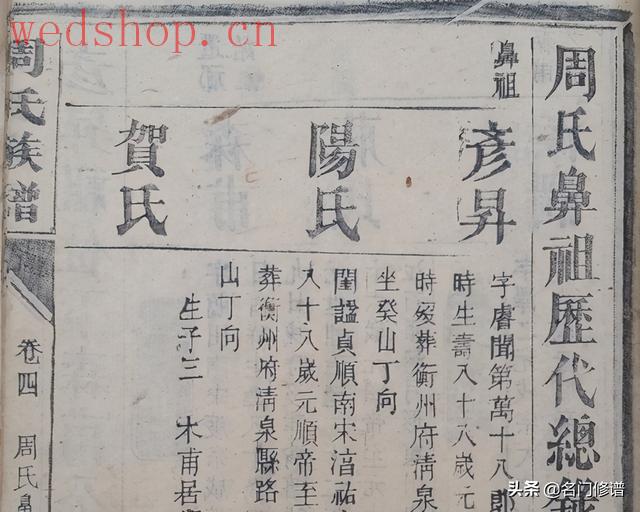 wedshop.cn
周氏鼻祖歷代總
鼻祖
彥昇
陽氏
賀氏
字睿聞第萬十八郎
時生壽八十八歲元
時歿葬衡州府清泉
坐癸山丁向
閨謚貞順南宋淳祐
八十八歲元順帝至
葬衡州府清泉縣路
山丁向
生子三 木甫居
周氏族譜
卷四 周氏鼻
头条 @名门修谱